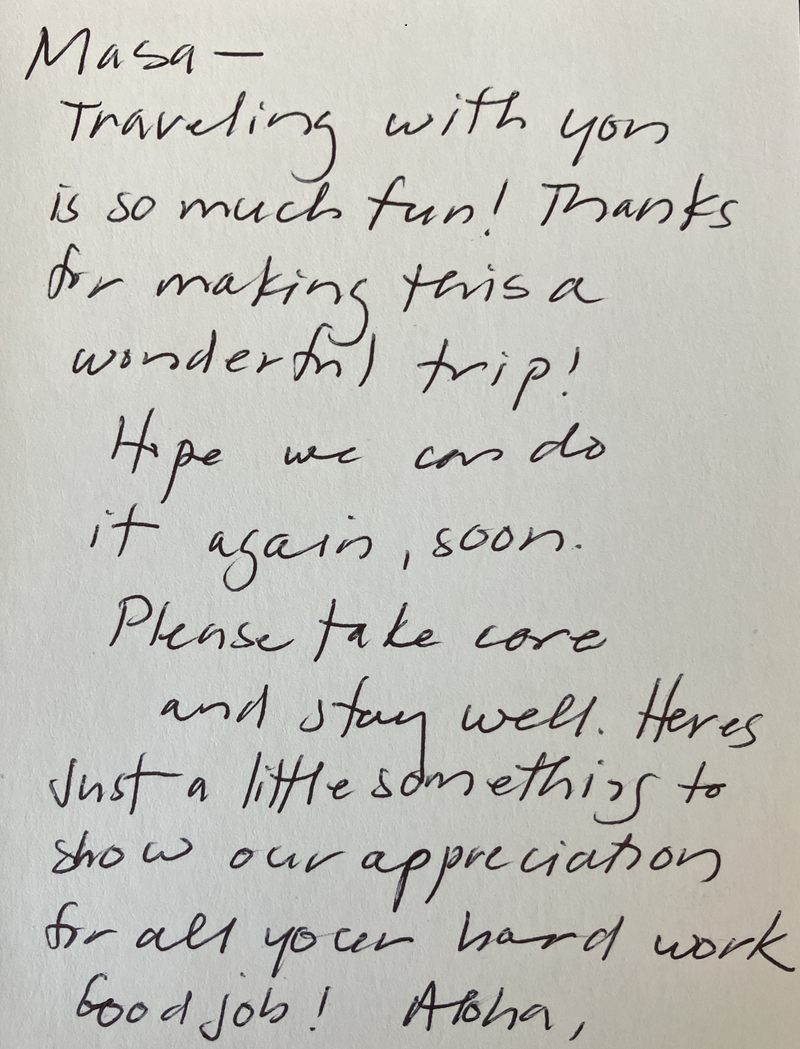 Masa —
Traveling with you
is so much fun! Thanks
for making this a
wonderful trip!
Hope we can do
it again, soon.
Please take care
and stay well. Heres
Just a little something to
show our appreciation
for all your hard work
Good job! Aloha,